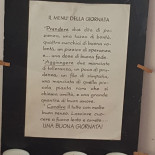 IL MENU DELLA GIORNATA
"Prendere due dita di pa-
zienza, una tazza di bontà,
quattro cucchiai di buona vo-
lontà, un pizzico di speranza
e... una dose di buona fede.
"Aggiungere due manciate di
tolleranza, un poco di pru-
denza, un filo di simpatia,
una manciata di quella pic-
cola pianta rara che si
chiama umiltà e una grande
quantità di buon umore.
"Condire il tutto con molto
buon senso. Lasciate cuocere
a fuoco lento e avrete...
UNA BUONA GIORNATA!